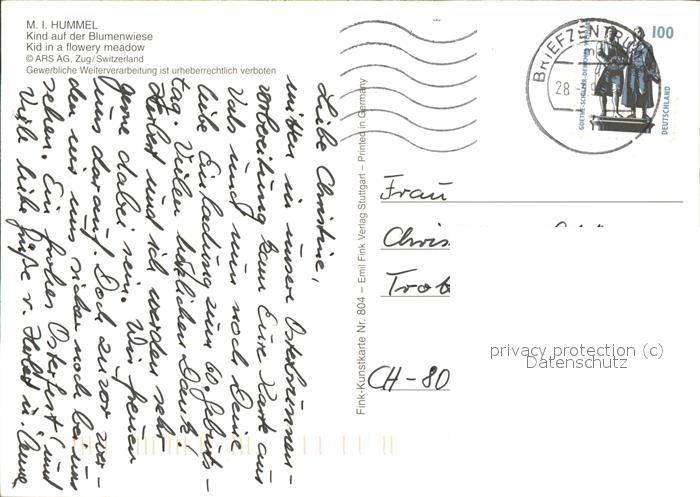 M. I. HUMMEL
Kind auf der Blumenwiese
Kid in a flowery meadow
© ARS AG, Zug/Switzerland
Gewerbliche Weiterverarbeitung ist urheberrechtlich verboten
Liebe Christine,
mitten in unsere Osterbrunnen-
vorbereitung kam Eure Karte aus
Vals und nun noch Deine
liebe Einladung zum 60. Geburts-
tag. Vielen herzlichen Dank!
Herbert und ich werden sehr
gerne dabei sein. Wir freuen
uns darauf. Doch zuvor wer-
den wir uns sicher noch bei uns
sehen. Ein frohes Osterfest und
Viele liebe Grüße v. Herbert u. Anne
Fink-Kunstkarte Nr. 804 – Emil Fink Verlag Stuttgart – Printed in Germany
BRIEFZENTRUM
28
GOETHE-SCHILLER-DENKMAL WEIMAR
100
DEUTSCHLAND
Frau
Chris
Trob
CH-80
privacy protection (c)
Datenschutz